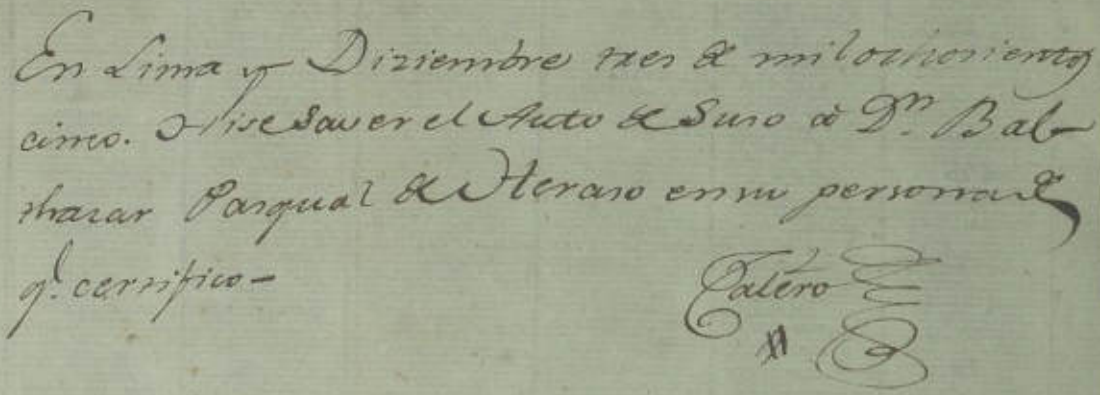 En Lima y Diziembre tres de mil ochosientos
cinco. Hise saver el Auto de Suso à Dn. Bal-
thazar Pasqual de Heraso en su persona de
q.e certifico-
Calero